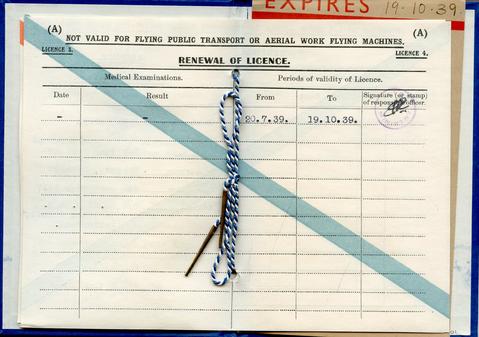 EXPIRES 19.10.39.
(A) (A)
NOT VALID FOR FLYING PUBLIC TRANSPORT OR AERIAL WORK FLYING MACHINES.
LICENCE 3. LICENCE 4.
RENEWAL OF LICENCE.
Medical Examinations. Periods of validity of Licence.
Date Result From To Signature (or stamp)
of responsible officer.
- - 20.7.39. 19.10.39.